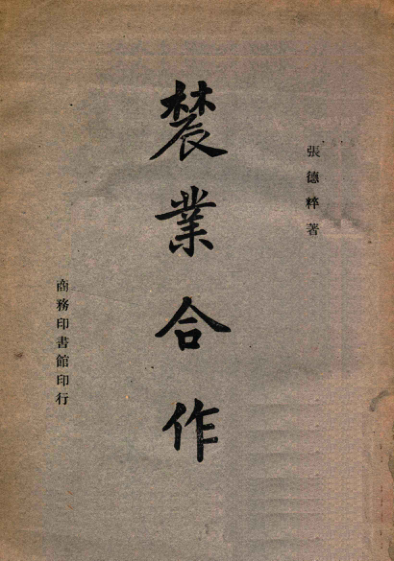 張德粹著
農業合作
商務印書館印行